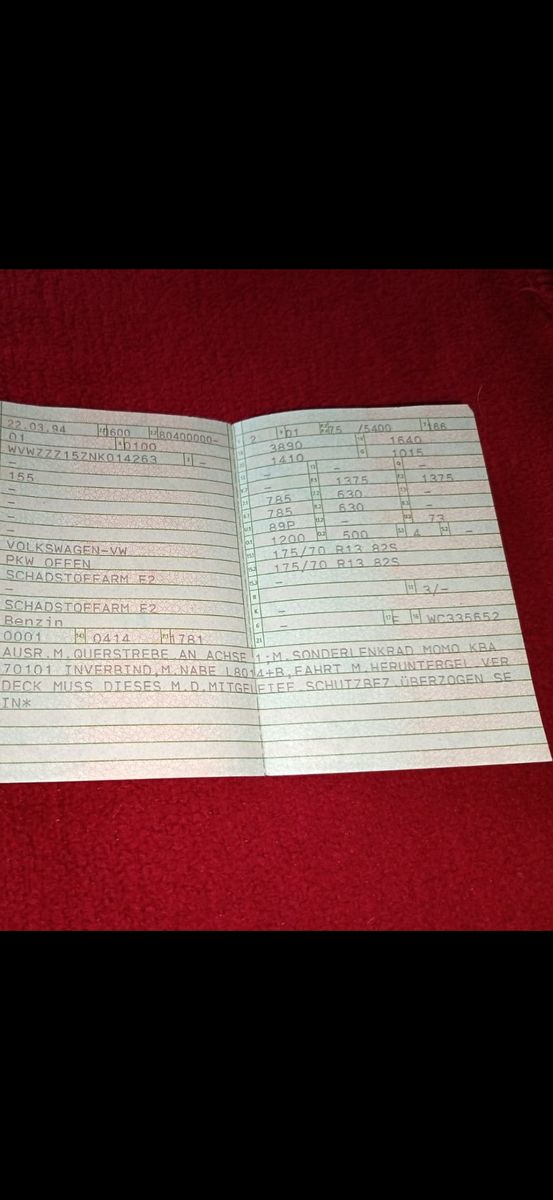 22.03.94 0600 80400000-
01 0100
WVWZZZ15ZNK014263 3 -
-
155
-
-
-
-
VOLKSWAGEN-VW
PKW OFFEN
SCHADSTOFFARM E2
-
SCHADSTOFFARM E2
Benzin
0001 0414 1781
2 01 75 /5400 166
3890 1640
1410 1015
- - -
- 1375 1375
785 630 -
785 630 -
89P - 73
1200 500 4 -
175/70 R13 82S
175/70 R13 82S
-
3/-
-
- E WC335652
AUSR.M.QUERSTREBE AN ACHSE 1;M.SONDERLENKRAD MOMO KBA
70101 INVERBIND.M.NABE L8014+B.FAHRT M.HERUNTERGEL.VER
DECK MUSS DIESES M.D.MITGELIEF.SCHUTZBEZ.ÜBERZOGEN SE
IN*